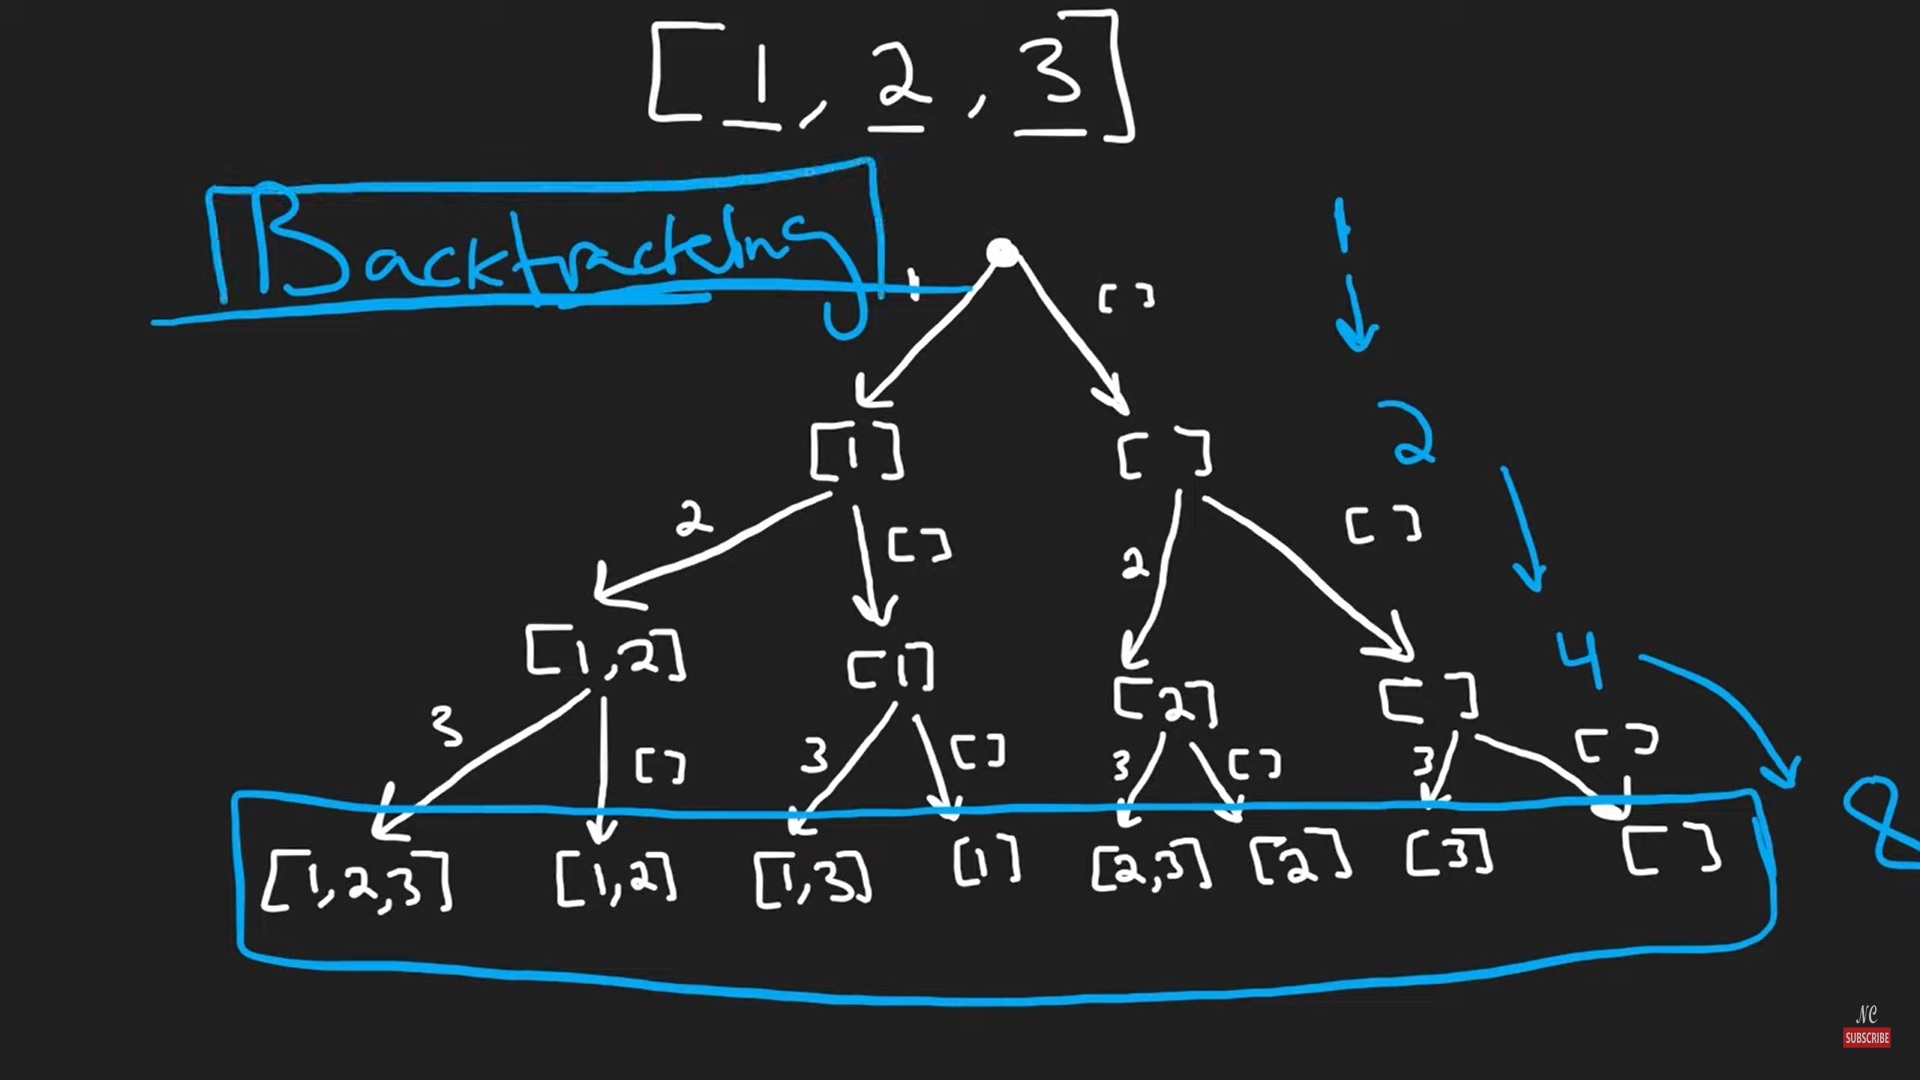 [1, 2, 3]
Backtracking
1
1 []
[1] []
2
2 [] 2 []
4
[1,2] [1] [2] []
3 [] 3 [] 3 [] 3 []
8
[1,2,3] [1,2] [1,3] [1] [2,3] [2] [3] []
NC
SUBSCRIBE